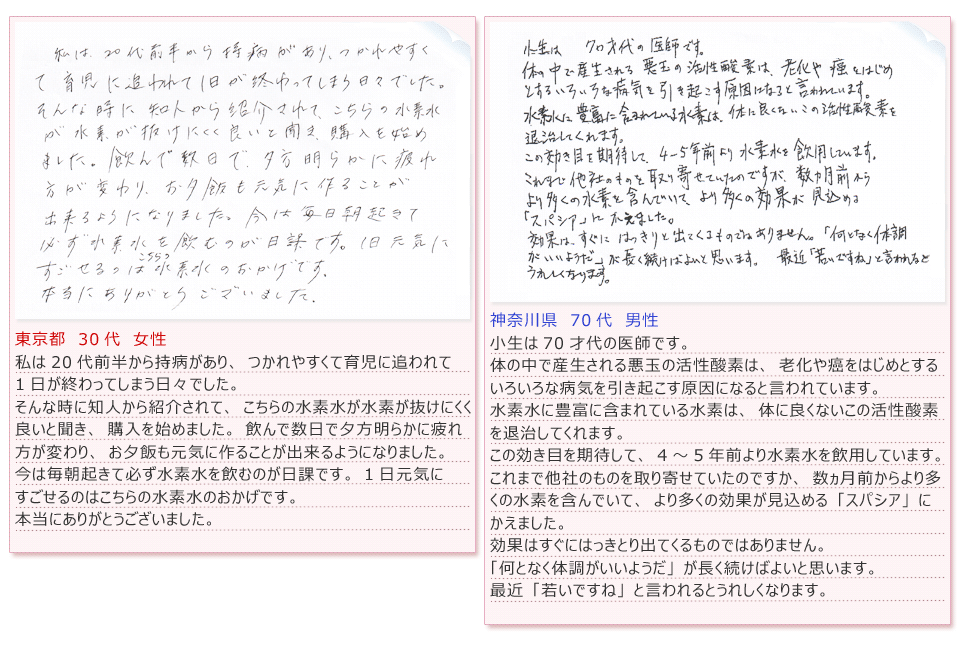 私は、20代前半から持病があり、つかれやすく
て育児に追われて1日が終わってしまう日々でした。
そんな時に知人から紹介されて、こちらの水素水
が水素が抜けにくく良いと聞き、購入を始め
ました。飲んで数日で、夕方明らかに疲れ
方が変わり、お夕飯も元気に作ることが
出来るようになりました。今は毎日朝起きて
必ず水素水を飲むのが日課です。1日元気に
すごせるのはこちらの水素水のおかげです。
本当にありがとうございました。
東京都 30代 女性
私は20代前半から持病があり、つかれやすくて育児に追われて
1日が終わってしまう日々でした。
そんな時に知人から紹介されて、こちらの水素水が水素が抜けにくく
良いと聞き、購入を始めました。飲んで数日で夕方明らかに疲れ
方が変わり、お夕飯も元気に作ることが出来るようになりました。
今は毎朝起きて必ず水素水を飲むのが日課です。1日元気に
すごせるのはこちらの水素水のおかげです。
本当にありがとうございました。
小生は 70才代の医師です。
体の中で産生される悪玉の活性酸素は、老化や癌をはじめ
とするいろいろな病気を引き起こす原因になると言われています。
水素水に豊富に含まれている水素は、体に良くないこの活性酸素を
退治してくれます。
この効き目を期待して、4〜5年前より水素水を飲用しています。
これまで他社のものを取り寄せていたのですが、数カ月前から
より多くの水素を含んでいて、より多くの効果が見込める
「スパシア」にかえました。
効果は、すぐにはっきりと出てくるものではありません。「何となく体調
がいいようだ」が長く続けばよいと思います。 最近「若いですね」と言われると
うれしくなります。
神奈川県 70代 男性
小生は70才代の医師です。
体の中で産生される悪玉の活性酸素は、老化や癌をはじめとする
いろいろな病気を引き起こす原因になると言われています。
水素水に豊富に含まれている水素は、体に良くないこの活性酸素
を退治してくれます。
この効き目を期待して、4〜5年前より水素水を飲用しています。
これまで他社のものを取り寄せていたのですか、数ヵ月前からより多
くの水素を含んでいて、より多くの効果が見込める「スパシア」に
かえました。
効果はすぐにはっきとり出てくるものではありません。
「何となく体調がいいようだ」が長く続けばよいと思います。
最近「若いですね」と言われるとうれしくなります。